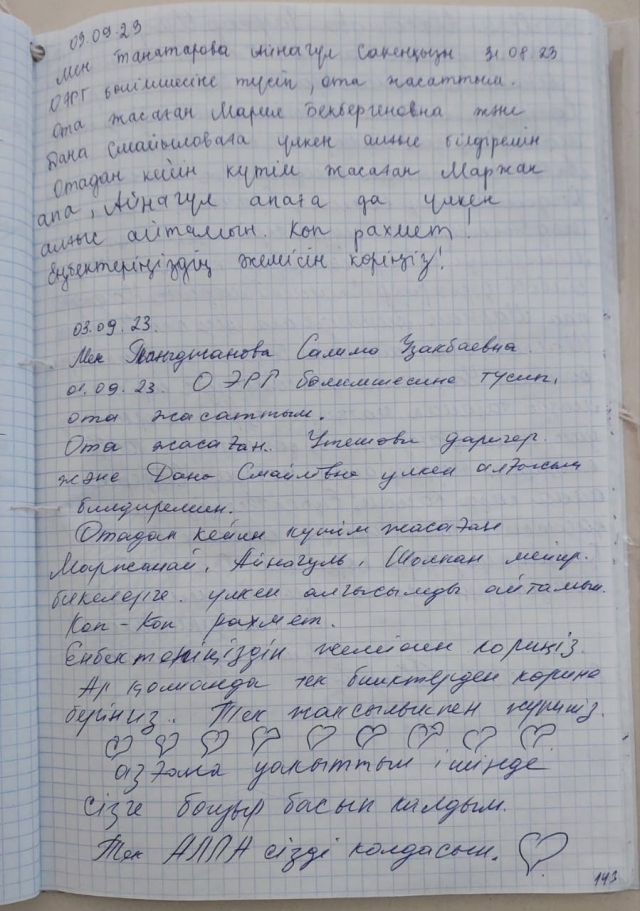 03.09.23
Мен Танатарова Айнагул Сакенқызы 31.08.23
ОЭРГ бөлімшесіне түсіп, ота жасаттым.
Ота жасаған Марие Бекбергеновна және
Дана Смайыловаға үлкен алғыс білдіремін
Отадан кейін күтім жасаған Маржан
апа, Айнагүл апаға да үлкен
алғыс айтамын. Көп рахмет!
Еңбектеріңіздің жемісін көріңіз!
03.09.23.
Мен Салима Узакбаевна
01.09.23. О ЭРГ болимшесине тусип,
ота жасаттым.
Ота жасаған. Утешова даригер.
және Дана улкен алғысым
билдиремин.
Отадан кейин кутим жасаған
Маржанай, Айнагуль, Шолпан мейир.
бикелерге. улкен алгысымды айтамын.
Коп-Коп рахмет.
Енбектериңіздін жемісин кориңіз.
Ар қоманда тек бииктерден корине
бериңиз. Тек жаксылыкпен журиңиз.
азғана уакыттын ішінде
сізге бауыр басып калдым.
Тек АЛЛА сізді колдасын.
143